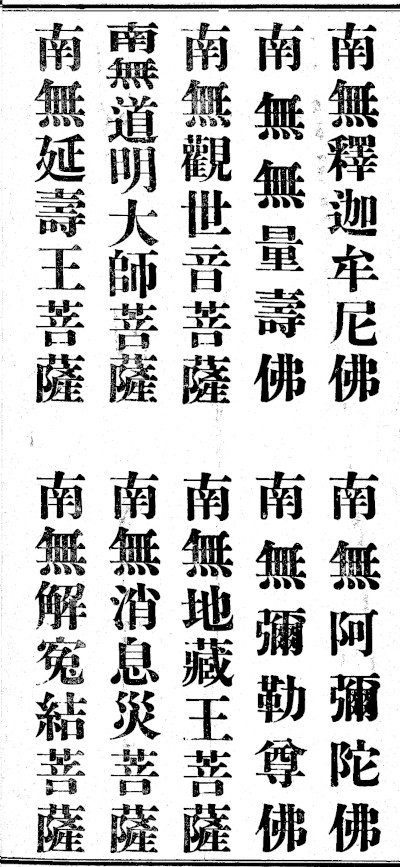 南無釋迦牟尼佛
南無阿彌陀佛
南無無量壽佛
南無彌勒尊佛
南無觀世音菩薩
南無地藏王菩薩
南無道明大師菩薩
南無消息災菩薩
南無延壽王菩薩
南無解寃結菩薩